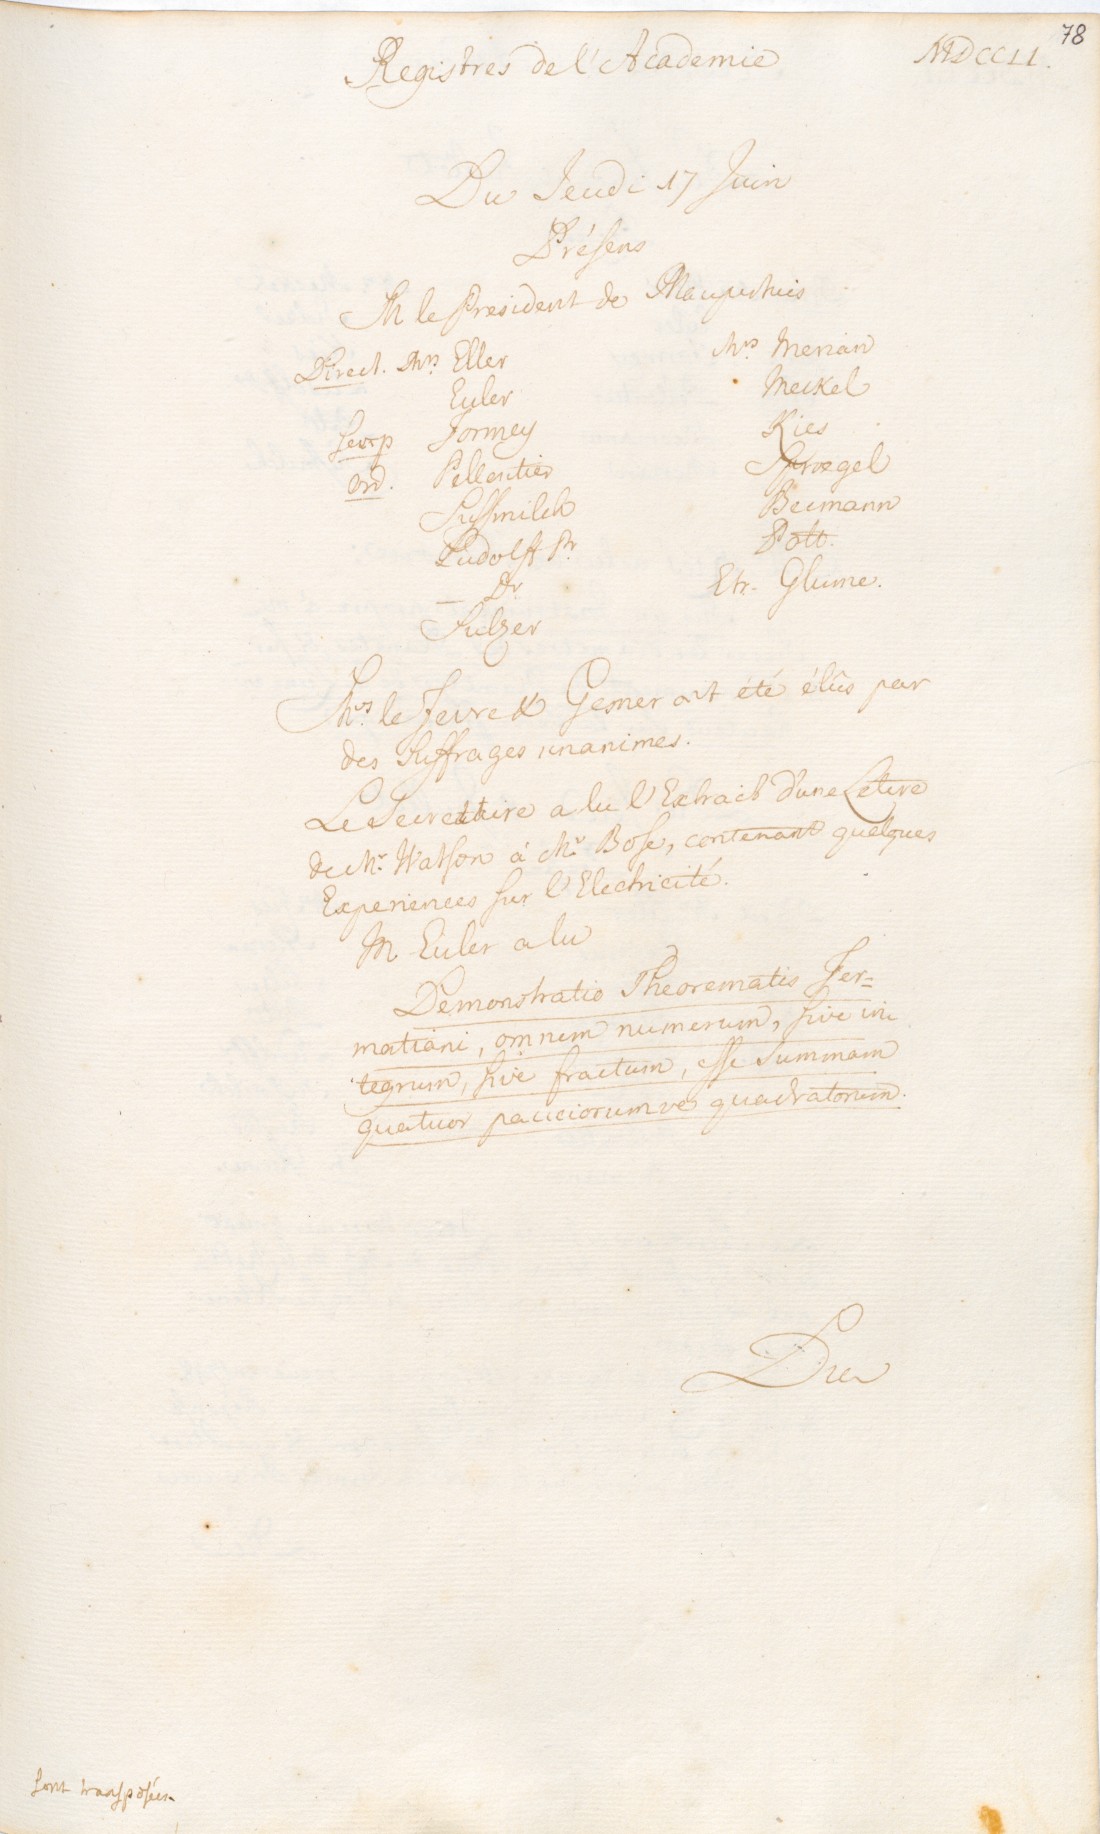 78
Registres de l'Academie MDCCLI.
Du Jeudi 17 Juin
Présens
M le President de Maupertuis
Direct. Mrs. Eller
Euler
Formey
Ord. Pelloutier
Sussmilch
Ludolff Pr
— Dr
Sulzer
Mrs Merian
Meckel
Kies
Sproegel
Becmann
Pott.
Etr. Glume.
Mrs. le Fevre & Gesner ont été élûs par
des suffrages unanimes.
Le Secretaire a lu l'Extrait d'une Lettre
de Mr. Watson à Mr. Bose, contenant quelques
Experiences sur l'Electricité.
M Euler a lu
Demonstratio Theorematis Fer=
matiani, omnem numerum, sive in
tegrum, sive fractum, esse summam
quatuor pauciorumve quadratorum.
Du
sont transposées.